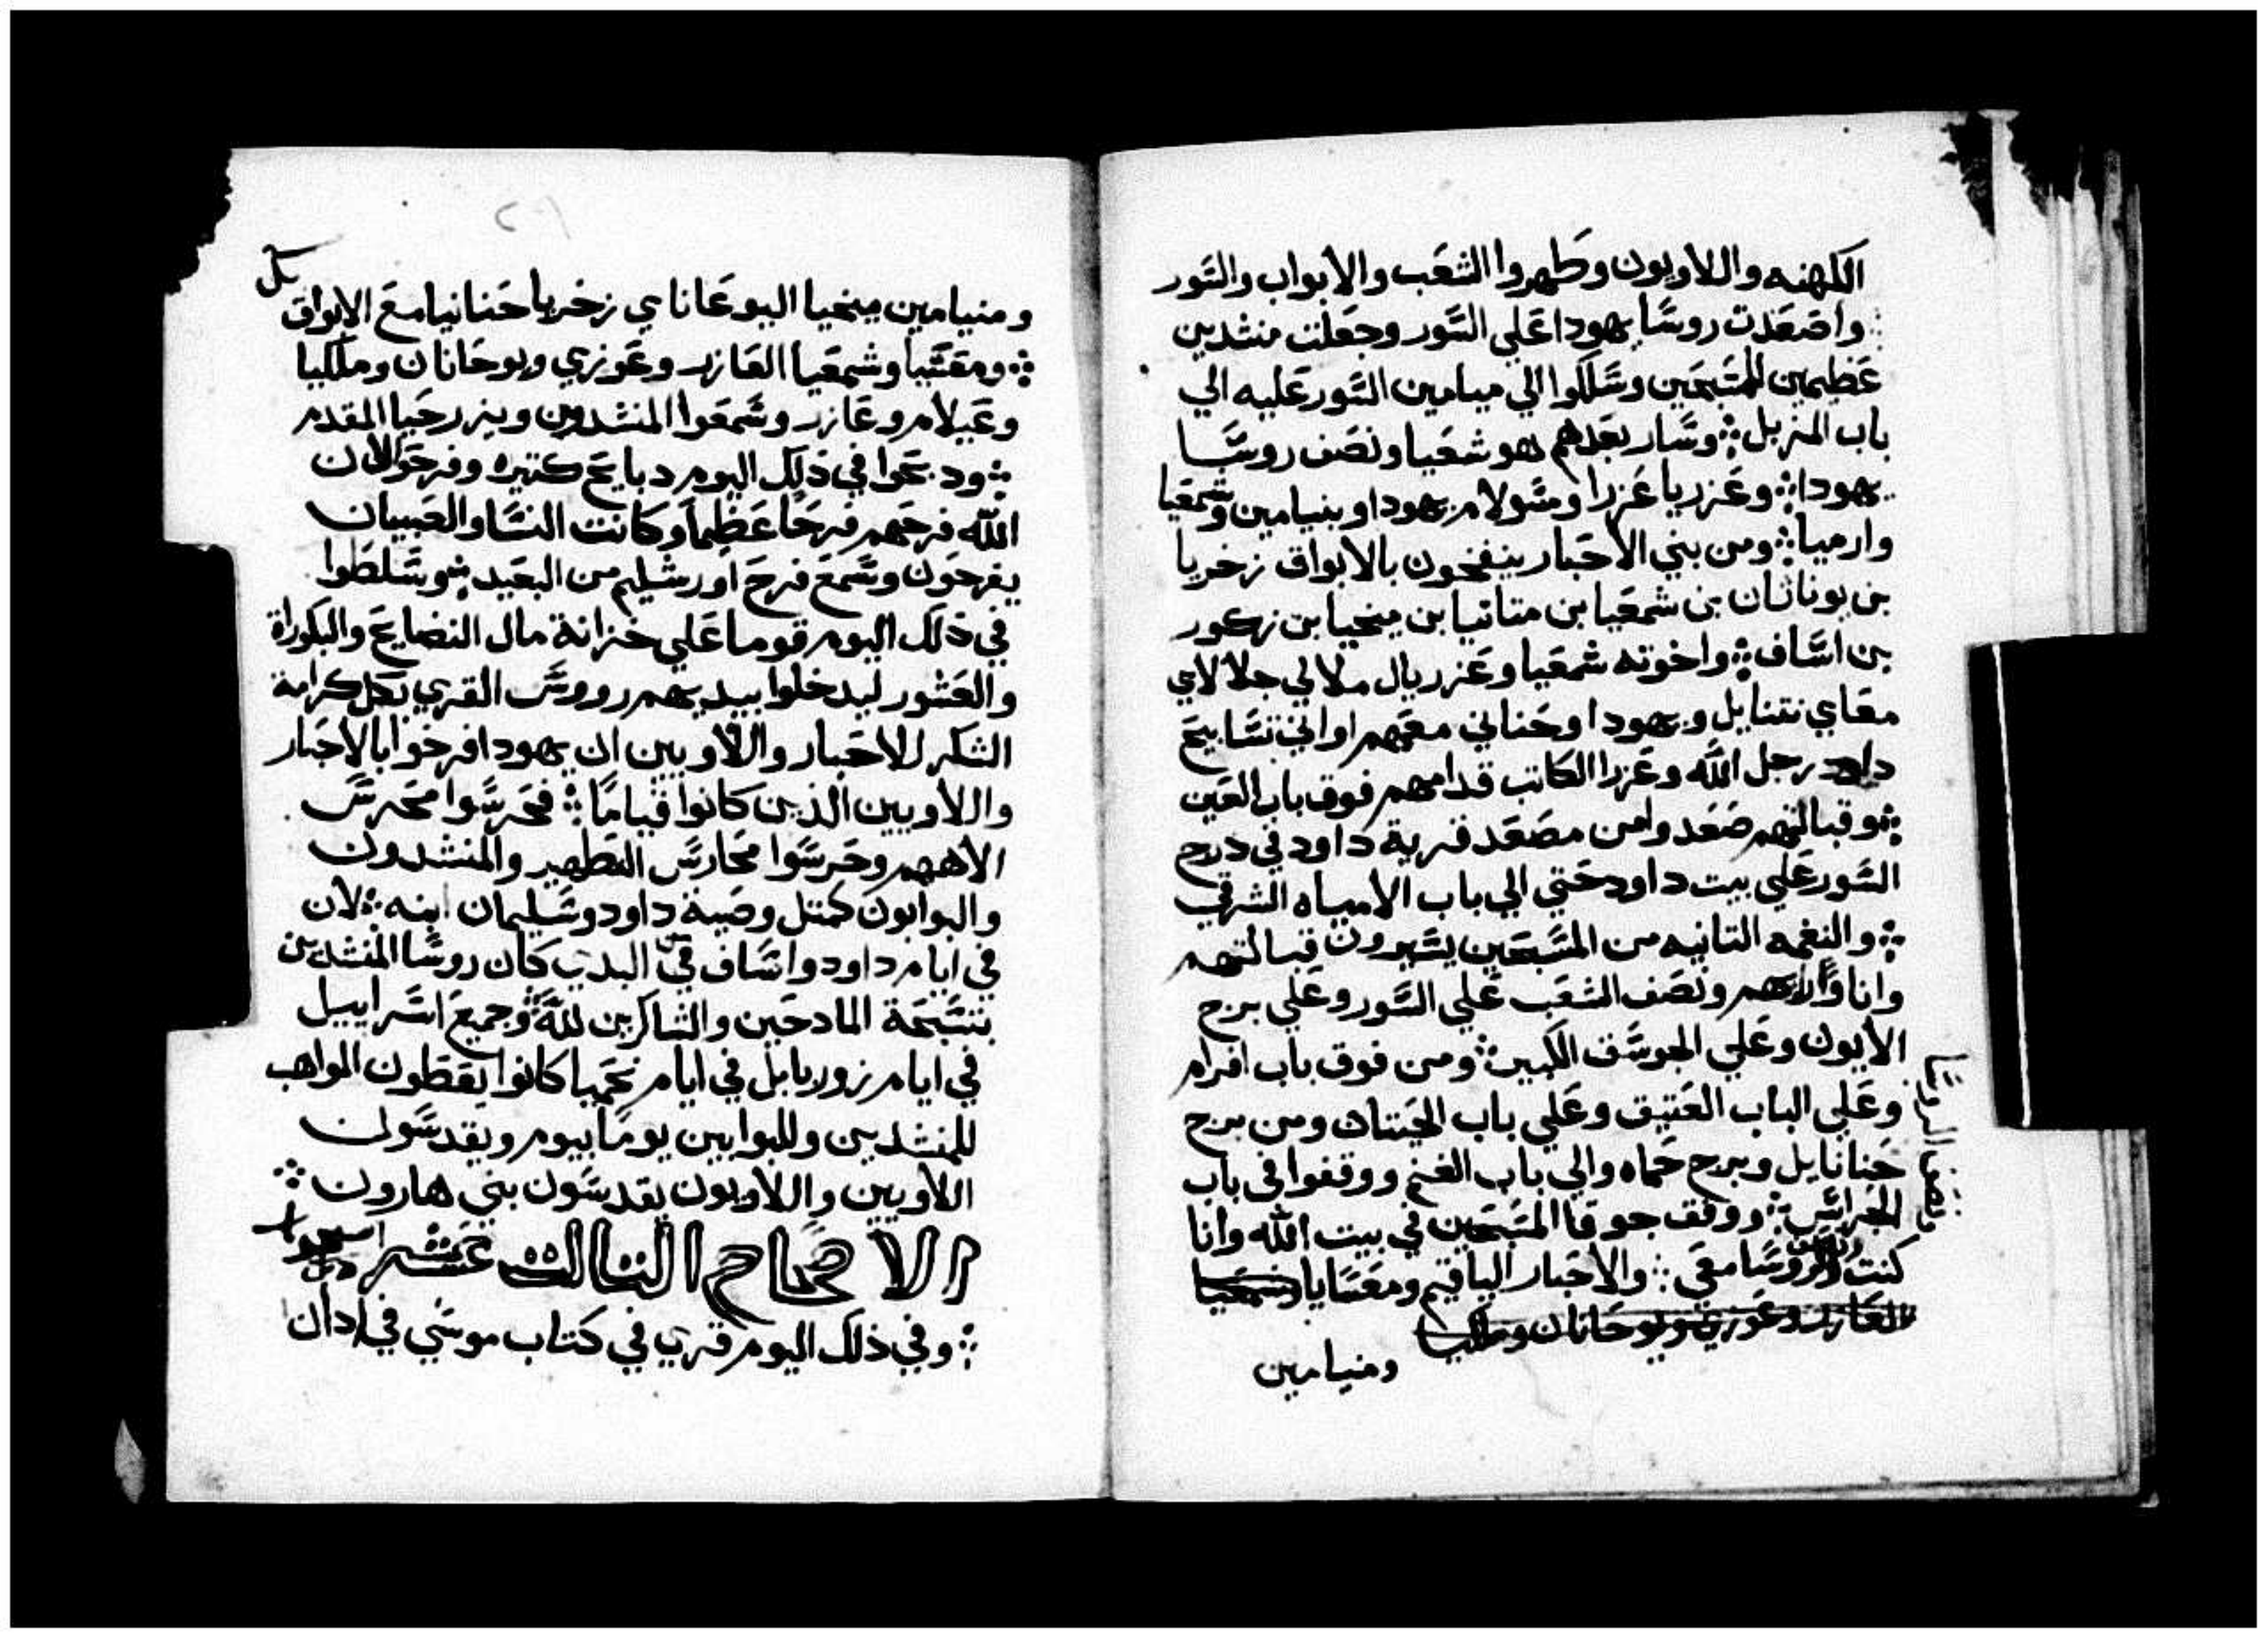 الكهنه واللاويون وطهروا الشعب والابواب والسور
واصعدت روسا يهودا علي السور وجعلت منشدين
عظيمين للمسبحين وسلكوا الي ميامين السور عليه الي
باب المزبل وسار بعدهم هوشعيا ونصف روسا
يهودا وعزريا عزرا ومسولام يهودا وبنيامين وشمعيا
وارميا ومن بني الاحبار ينفخون بالابواق زخريا
بن يوناتان بن شمعيا بن متانيا بن ميخيا بن زكور
بن اساف واخوته شمعيا وعزريال ملالي جلالاي
معاي نتنايل ويهودا وحناني معهم اواني تسابيح
داود رجل الله وعزرا الكاتب قدامهم فوق باب العين
وقبالتهم صعدوا من مصعد قرية داود في درج
السور علي بيت داود حتي الي باب الامياه الشرقي
والنغمه التانيه من المسبحين يسيرون قبالتهم
وانا وراهم ونصف الشعب علي السور وعلي برج
الايون وعلي الجوسق الكبير ومن فوق باب افرام
وعلي الباب العتيق وعلي باب الحيتان ومن برج
حنانايل وبرج حماه والي باب الغنم ووقفوا في باب
الحرايس ووقف جوقا المسبحين في بيت الله وانا
كنت والروسا معي والاحبار الياقيم ومعسايا وشمعيا
العازر وعوزي ويوحانان وملكيا
ومنيامين
ومنيامين ميخيا اليوعاناي زخريا حنانيا مع الابواق
ومعسيا وشمعيا العازر وعوزي ويوحانان وملكيا
وعيلام وعازر وسمعوا المنشدون ويزرحيا المقدم
ودبحوا في ذلك اليوم دبايح كتيره وفرحوا لان
الله فرحهم فرحا عظيما وكانت النسا والصبيان
يفرحون وسمع فرح اورشليم من البعيد وسلطوا
في ذلك اليوم قوما علي خزانة مال النضايح والبكوراة
والعشور ليدخلوا بيديهم رووس القري بكل كرامة
الشكر للاحبار واللاويين ان يهودا فرحوا بالاحبار
واللاويين الذين كانوا قياما فحرسوا محرس
الاههم وحرسوا محارس التطهير والمنشدون
والبوابون كمتل وصية داود وسليمان ابنه لان
في ايام داود واساف في البدي كان روسا المنشدين
بتسبحة المادحين والشاكرين لله وجميع اسراييل
في ايام زوربابل في ايام نحميا كانوا يعطون المواهب
للمنشدين وللبوابين يوما بيوم ويقدسون
اللاويين واللاويون يقدسون بني هارون
الاصحاح التالت عشر
وفي ذلك اليوم قري في كتاب موسي في ادان